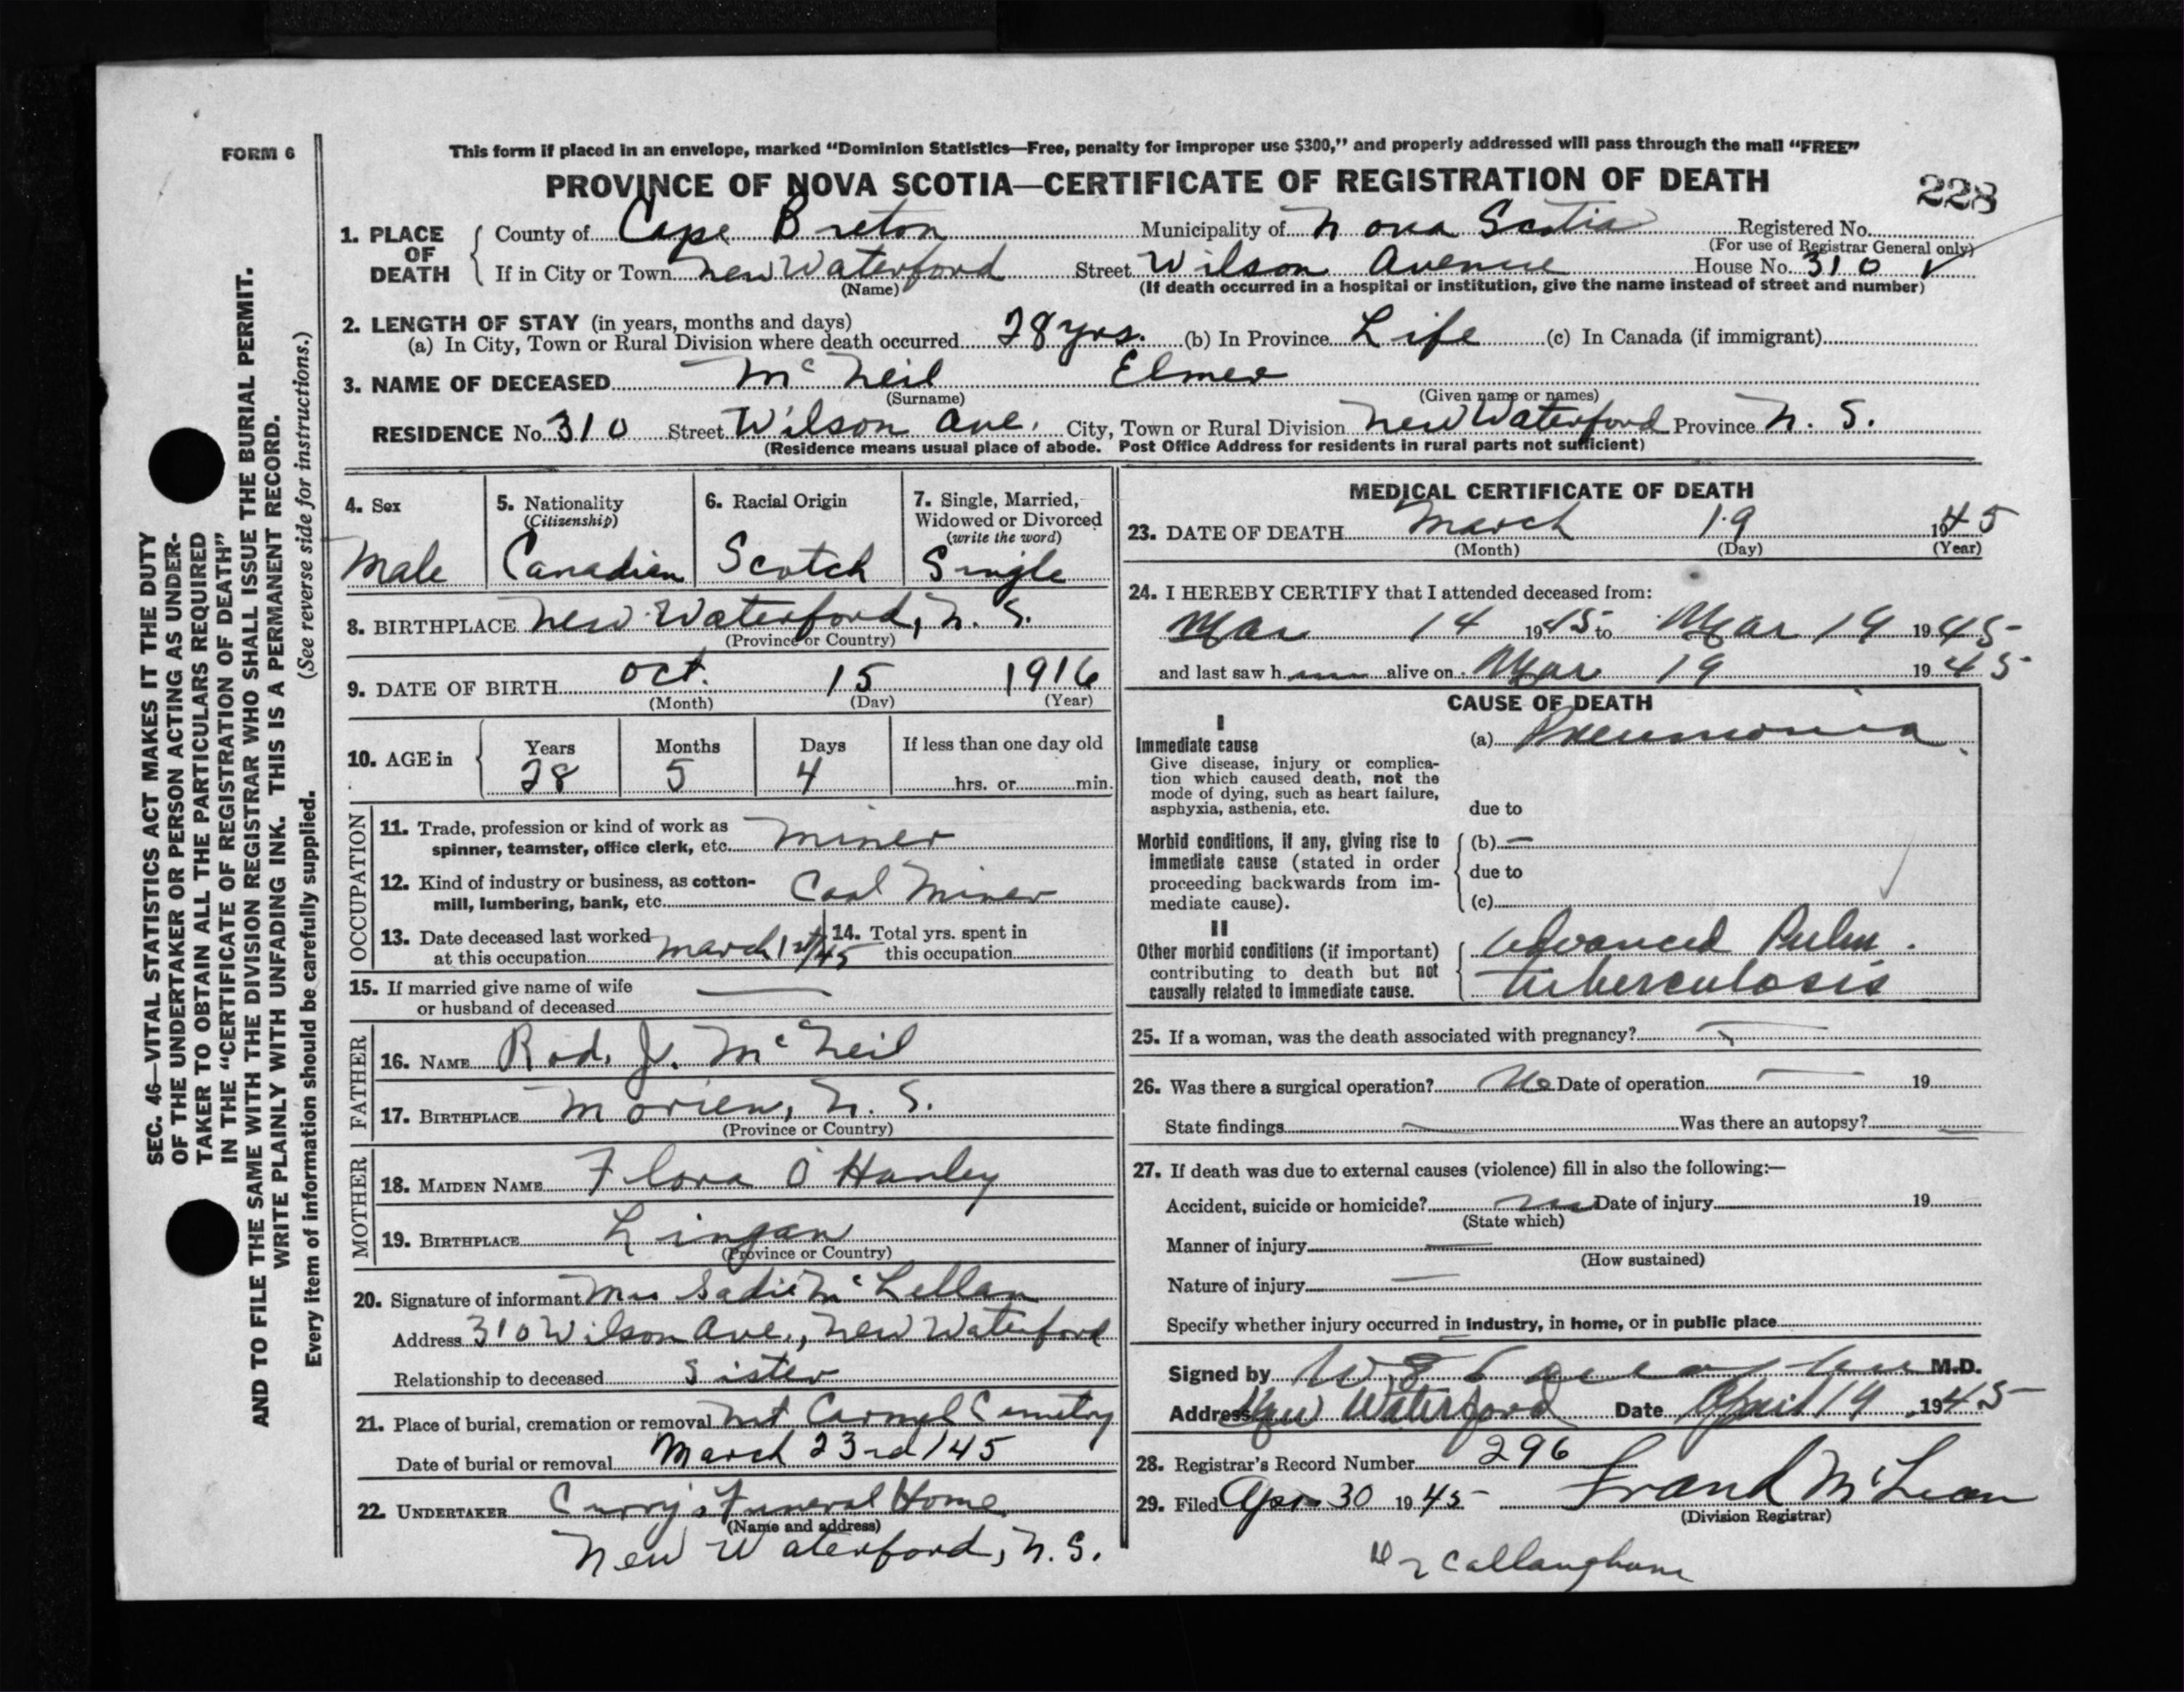 FORM 6
This form if placed in an envelope, marked "Dominion Statistics—Free, penalty for improper use $300," and properly addressed will pass through the mail "FREE"
PROVINCE OF NOVA SCOTIA—CERTIFICATE OF REGISTRATION OF DEATH
228
SEC. 46—VITAL STATISTICS ACT MAKES IT THE DUTY
OF THE UNDERTAKER OR PERSON ACTING AS UNDER-
TAKER TO OBTAIN ALL THE PARTICULARS REQUIRED
IN THE "CERTIFICATE OF REGISTRATION OF DEATH"
AND TO FILE THE SAME WITH THE DIVISION REGISTRAR WHO SHALL ISSUE THE BURIAL PERMIT.
WRITE PLAINLY WITH UNFADING INK. THIS IS A PERMANENT RECORD.
Every item of information should be carefully supplied. (See reverse side for instructions.)
1. PLACE OF DEATH
County of Cape Breton Municipality of Nova Scotia Registered No.
(For use of Registrar General only)
If in City or Town New Waterford Street Wilson Avenue House No. 310
(Name) (If death occurred in a hospital or institution, give the name instead of street and number)
2. LENGTH OF STAY (in years, months and days)
(a) In City, Town or Rural Division where death occurred 28 yrs. (b) In Province Life (c) In Canada (if immigrant)
3. NAME OF DECEASED McNeil Elmer
(Surname) (Given name or names)
RESIDENCE No. 310 Street Wilson Ave. City, Town or Rural Division New Waterford Province N. S.
(Residence means usual place of abode. Post Office Address for residents in rural parts not sufficient)
4. Sex
Male
5. Nationality
(Citizenship)
Canadian
6. Racial Origin
Scotch
7. Single, Married,
Widowed or Divorced
(write the word)
Single
8. BIRTHPLACE New Waterford, N. S.
(Province or Country)
9. DATE OF BIRTH Oct. 15 1916
(Month) (Day) (Year)
10. AGE in
Years Months Days If less than one day old
28 5 4 hrs. or min.
OCCUPATION
11. Trade, profession or kind of work as
spinner, teamster, office clerk, etc. Miner
12. Kind of industry or business, as cotton-
mill, lumbering, bank, etc. Coal Miner
13. Date deceased last worked
at this occupation March 1st/45
14. Total yrs. spent in
this occupation
15. If married give name of wife
or husband of deceased —
FATHER
16. NAME Rod. J. McNeil
17. BIRTHPLACE Morien, N. S.
(Province or Country)
MOTHER
18. MAIDEN NAME Flora O'Hanley
19. BIRTHPLACE Lingan
(Province or Country)
20. Signature of informant Mrs Sadie McLellan
Address 310 Wilson Ave., New Waterford
Relationship to deceased Sister
21. Place of burial, cremation or removal Mt Carmel Cemetry
Date of burial or removal March 23rd/45
22. UNDERTAKER Curry's Funeral Home
(Name and address)
New Waterford, N. S.
MEDICAL CERTIFICATE OF DEATH
23. DATE OF DEATH March 19 1945
(Month) (Day) (Year)
24. I HEREBY CERTIFY that I attended deceased from:
Mar 14 1945 to Mar 19 1945
and last saw him alive on Mar 19 1945
CAUSE OF DEATH
I
Immediate cause
Give disease, injury or complica-
tion which caused death, not the
mode of dying, such as heart failure,
asphyxia, asthenia, etc.
(a) Pneumonia
due to
Morbid conditions, if any, giving rise to
immediate cause (stated in order
proceeding backwards from im-
mediate cause).
(b) —
due to
(c)
II
Other morbid conditions (if important)
contributing to death but not
causally related to immediate cause.
Advanced Pulm.
tuberculosis
25. If a woman, was the death associated with pregnancy? —
26. Was there a surgical operation? No Date of operation — 19
State findings — Was there an autopsy? —
27. If death was due to external causes (violence) fill in also the following:—
Accident, suicide or homicide? no Date of injury 19
(State which)
Manner of injury —
(How sustained)
Nature of injury —
Specify whether injury occurred in industry, in home, or in public place
Signed by M.D.
Address New Waterford Date April 19 1945
28. Registrar's Record Number 296
29. Filed Apr 30 1945 Frank McLean
(Division Registrar)
Callanghan